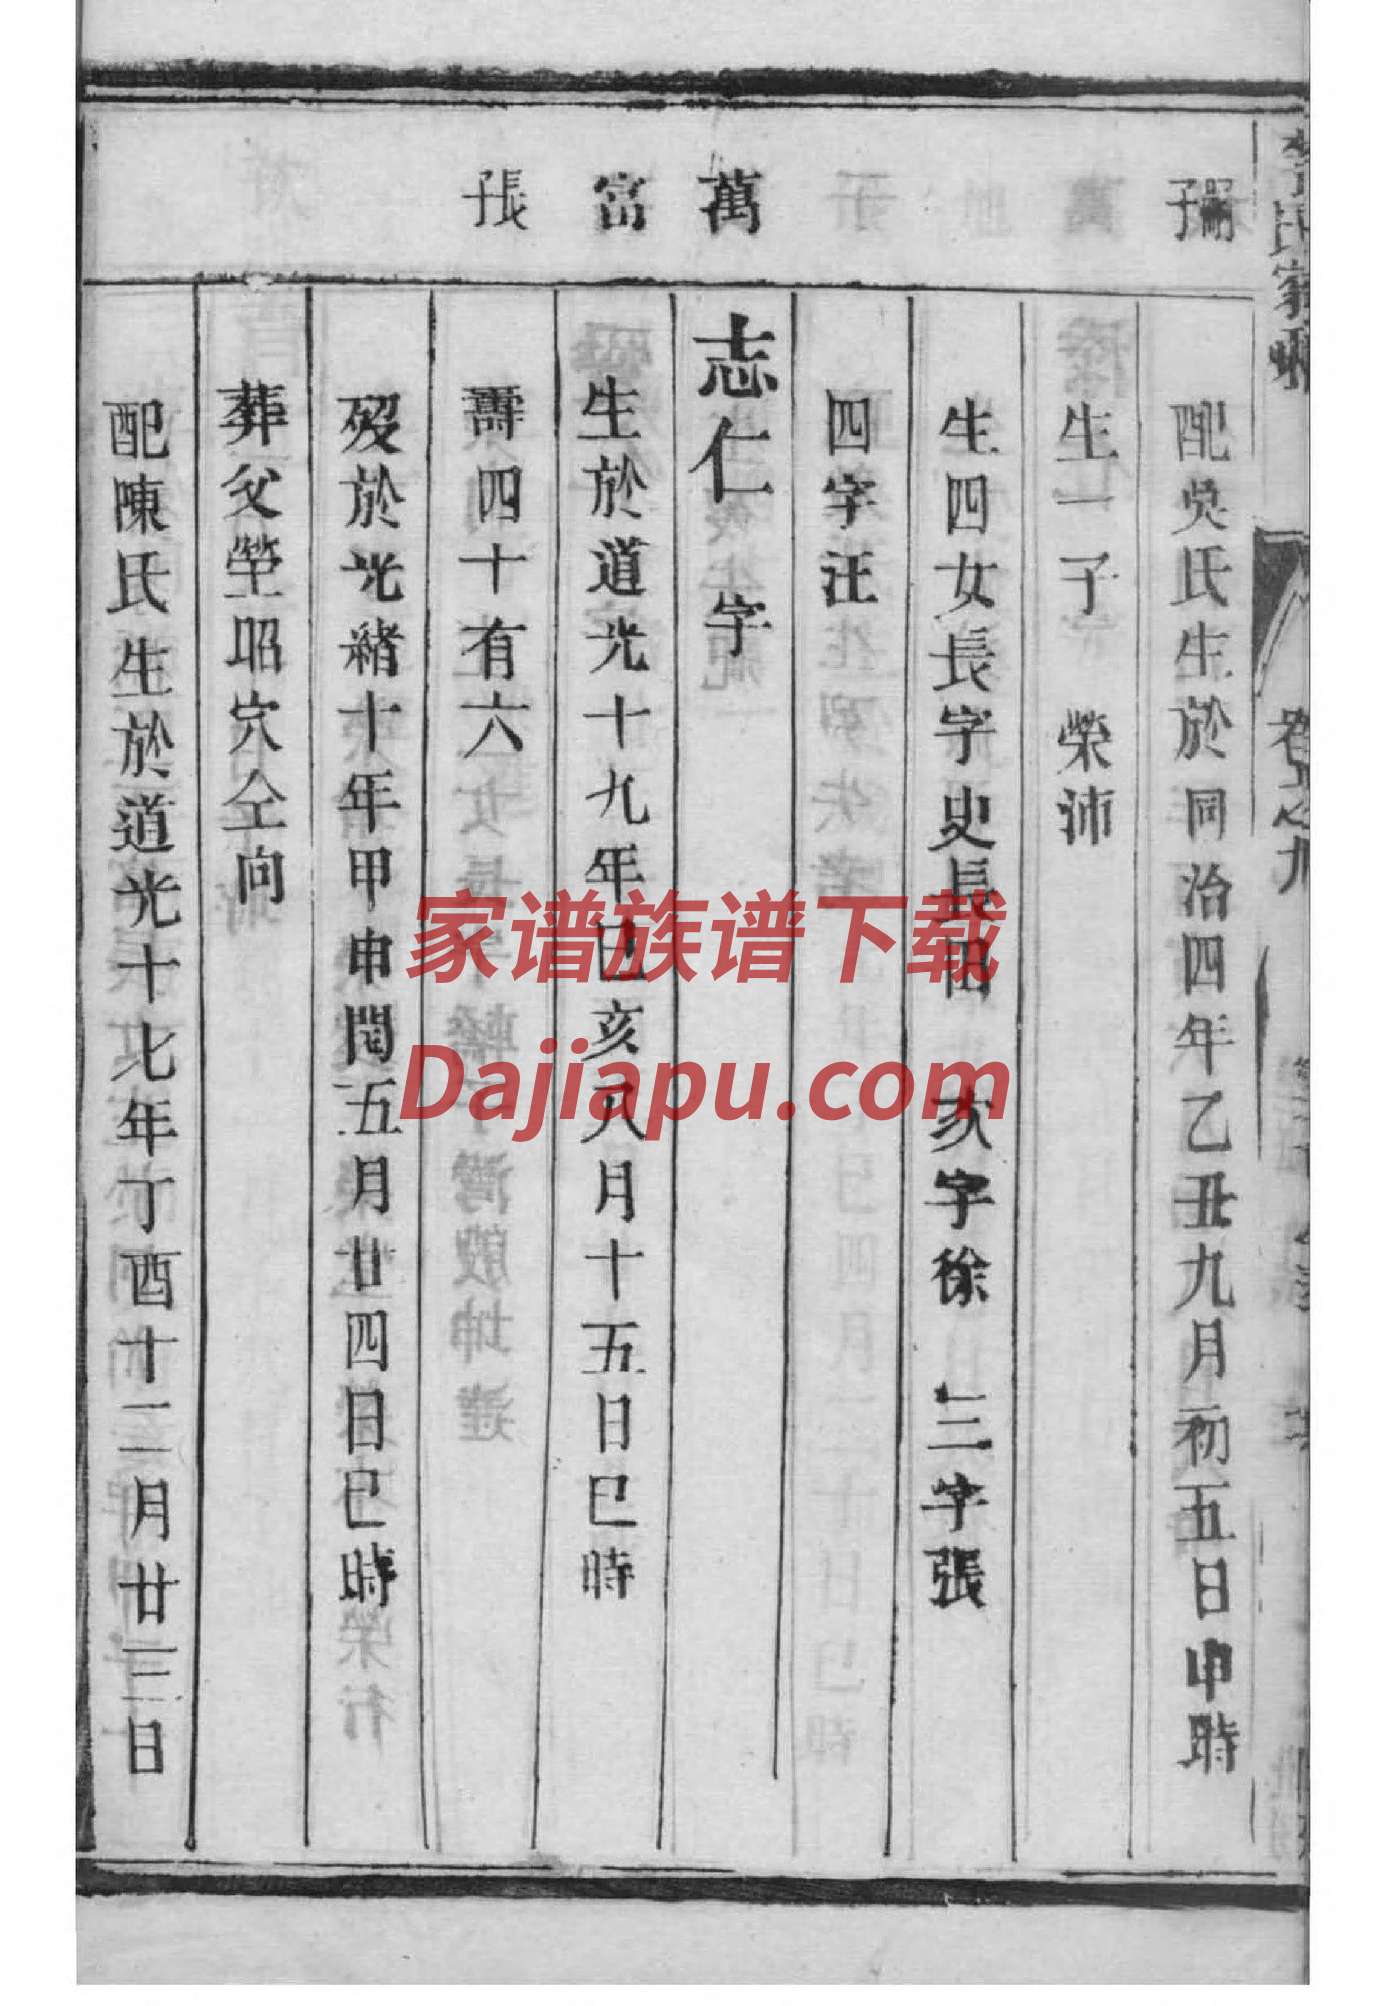 配吳氏生於同治四年乙丑九月初五日申時
生一子 榮沛
生四女長字史長田 次字徐 三字張
四字汪
萬富張子
志仁 字
生於道光十九年巳亥八月十五日巳時
壽四十有六
歿於光緒十年甲申閏五月廿四日巳時
葬父塋昭穴仝向
配陳氏生於道光十七年丁酉十二月廿三日
家谱族谱下载
Dajiapu.com